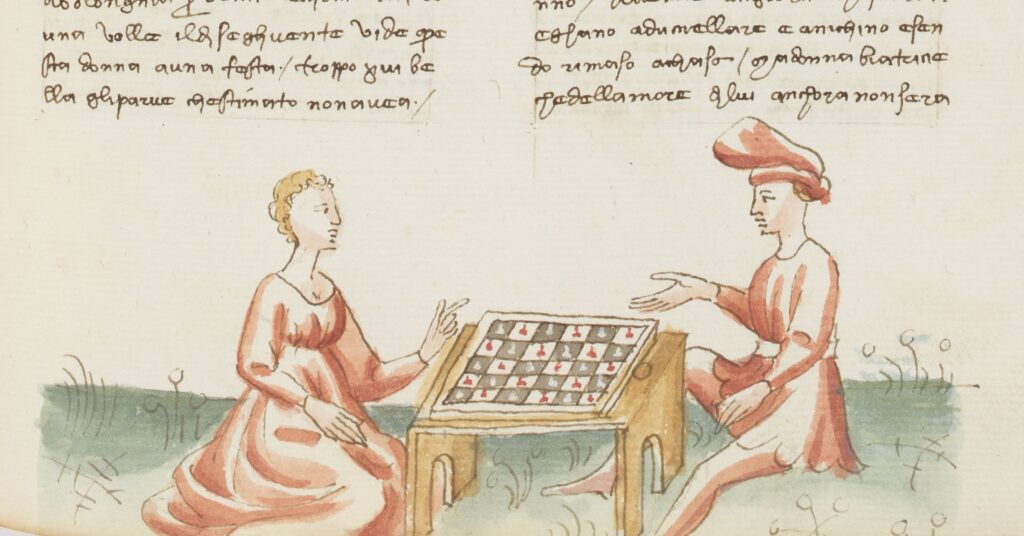 una volta il di seghuente vide que
sta donna auna festa / troppo piu be
lla gli parve che stimato non avea /
eghano aduciellare e anichino esen
do rimaso achasa / Madonna biatricie
che dellamore di lui anchora non sera